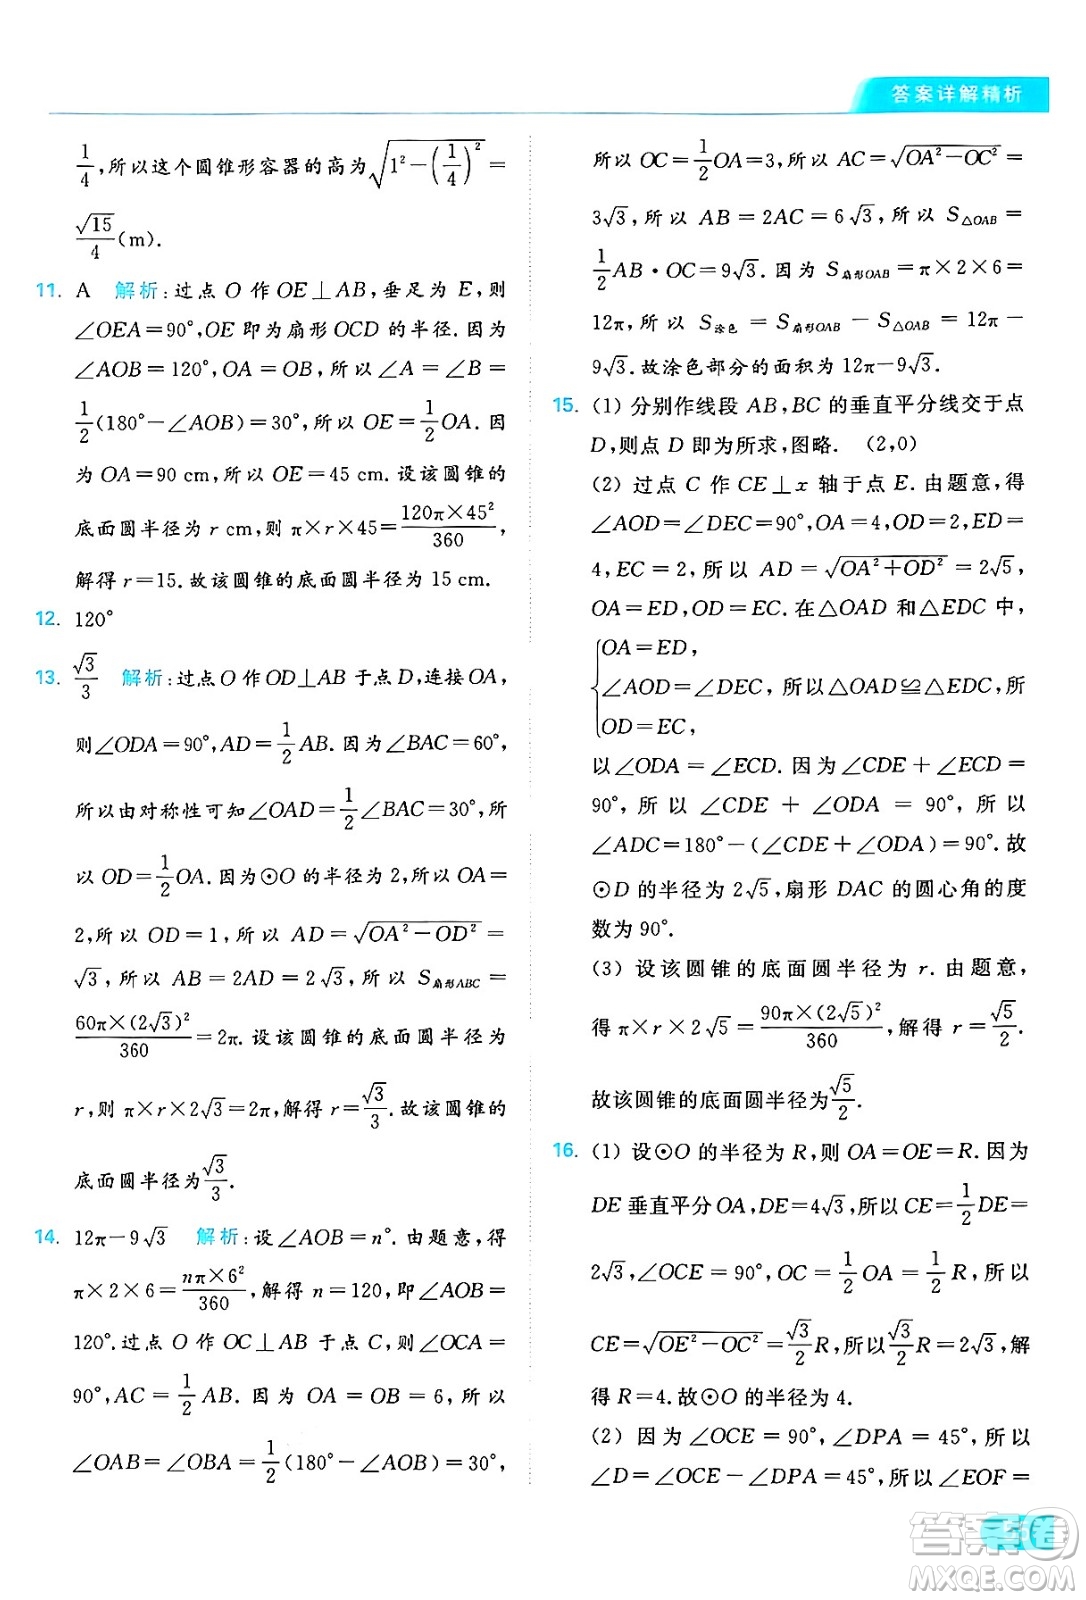 答案详解精析
1/4,所以这个圆锥形容器的高为√(1²-(1/4)²)=
√15/4(m).
11. A 解析:过点 O 作 OE⊥AB,垂足为 E,则
∠OEA=90°,OE 即为扇形 OCD 的半径.因为
∠AOB=120°,OA=OB,所以∠A=∠B=
1/2(180°-∠AOB)=30°,所以 OE=1/2OA.因
为 OA=90 cm,所以 OE=45 cm.设该圆锥的
底面圆半径为 r cm,则 π×r×45=120π×45²/360,
解得 r=15.故该圆锥的底面圆半径为 15 cm.
12. 120°
13. √3/3 解析:过点 O 作 OD⊥AB 于点 D,连接 OA,
则∠ODA=90°,AD=1/2AB.因为∠BAC=60°,
所以由对称性可知∠OAD=1/2∠BAC=30°,所
以 OD=1/2OA.因为⊙O 的半径为 2,所以 OA=
2,所以 OD=1,所以 AD=√(OA²-OD²)=
√3,所以 AB=2AD=2√3,所以 S扇形ABC=
60π×(2√3)²/360=2π.设该圆锥的底面圆半径为
r,则 π×r×2√3=2π,解得 r=√3/3.故该圆锥的
底面圆半径为√3/3.
14. 12π-9√3 解析:设∠AOB=n°.由题意,得
π×2×6=nπ×6²/360,解得 n=120,即∠AOB=
120°.过点 O 作 OC⊥AB 于点 C,则∠OCA=
90°,AC=1/2AB.因为 OA=OB=6,所以
∠OAB=∠OBA=1/2(180°-∠AOB)=30°,
所以 OC=1/2OA=3,所以 AC=√(OA²-OC²)=
3√3,所以 AB=2AC=6√3,所以 S△OAB=
1/2AB·OC=9√3.因为 S扇形OAB=π×2×6=
12π,所以 S涂色=S扇形OAB-S△OAB=12π-
9√3.故涂色部分的面积为 12π-9√3.
15. (1) 分别作线段 AB,BC 的垂直平分线交于点
D,则点 D 即为所求,图略. (2,0)
(2) 过点 C 作 CE⊥x 轴于点 E.由题意,得
∠AOD=∠DEC=90°,OA=4,OD=2,DE=
4,EC=2,所以 AD=√(OA²+OD²)=2√5,
OA=ED,OD=EC.在△OAD 和△EDC 中,
{OA=ED,
∠AOD=∠DEC, 所以△OAD≌△EDC,所
OD=EC,
以∠ODA=∠ECD.因为∠CDE+∠ECD=
90°,所以∠CDE+∠ODA=90°,所以
∠ADC=180°-(∠CDE+∠ODA)=90°.故
⊙D 的半径为 2√5,扇形 DAC 的圆心角的度
数为 90°.
(3) 设该圆锥的底面圆半径为 r.由题意,
得 π×r×2√5=90π×(2√5)²/360,解得 r=√5/2.
故该圆锥的底面圆半径为√5/2.
16. (1) 设⊙O 的半径为 R,则 OA=OE=R.因为
DE 垂直平分 OA,DE=4√3,所以 CE=1/2DE=
2√3,∠OCE=90°,OC=1/2OA=1/2R,所以
CE=√(OE²-OC²)=√3/2R,所以√3/2R=2√3,解
得 R=4.故⊙O 的半径为 4.
(2) 因为∠OCE=90°,∠DPA=45°,所以
∠D=∠OCE-∠DPA=45°,所以∠EOF=
答案圈
MXQE.COM